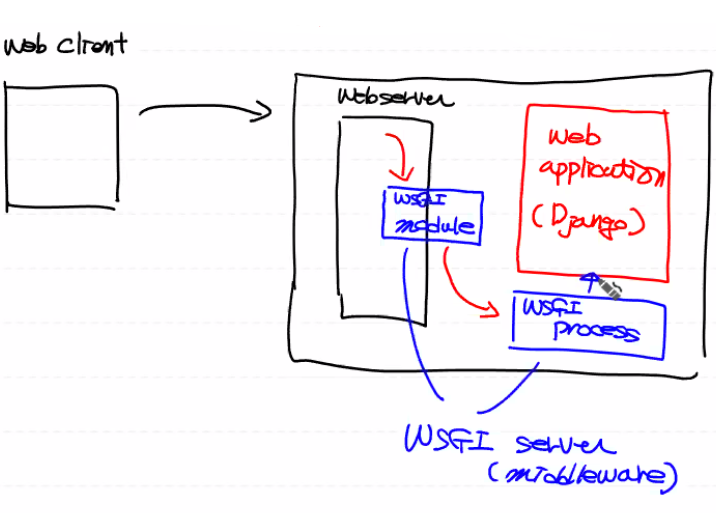 Web Client
Webserver
WSGI
module
Web
application
(Django)
WSGI
process
WSGI server
(middleware)